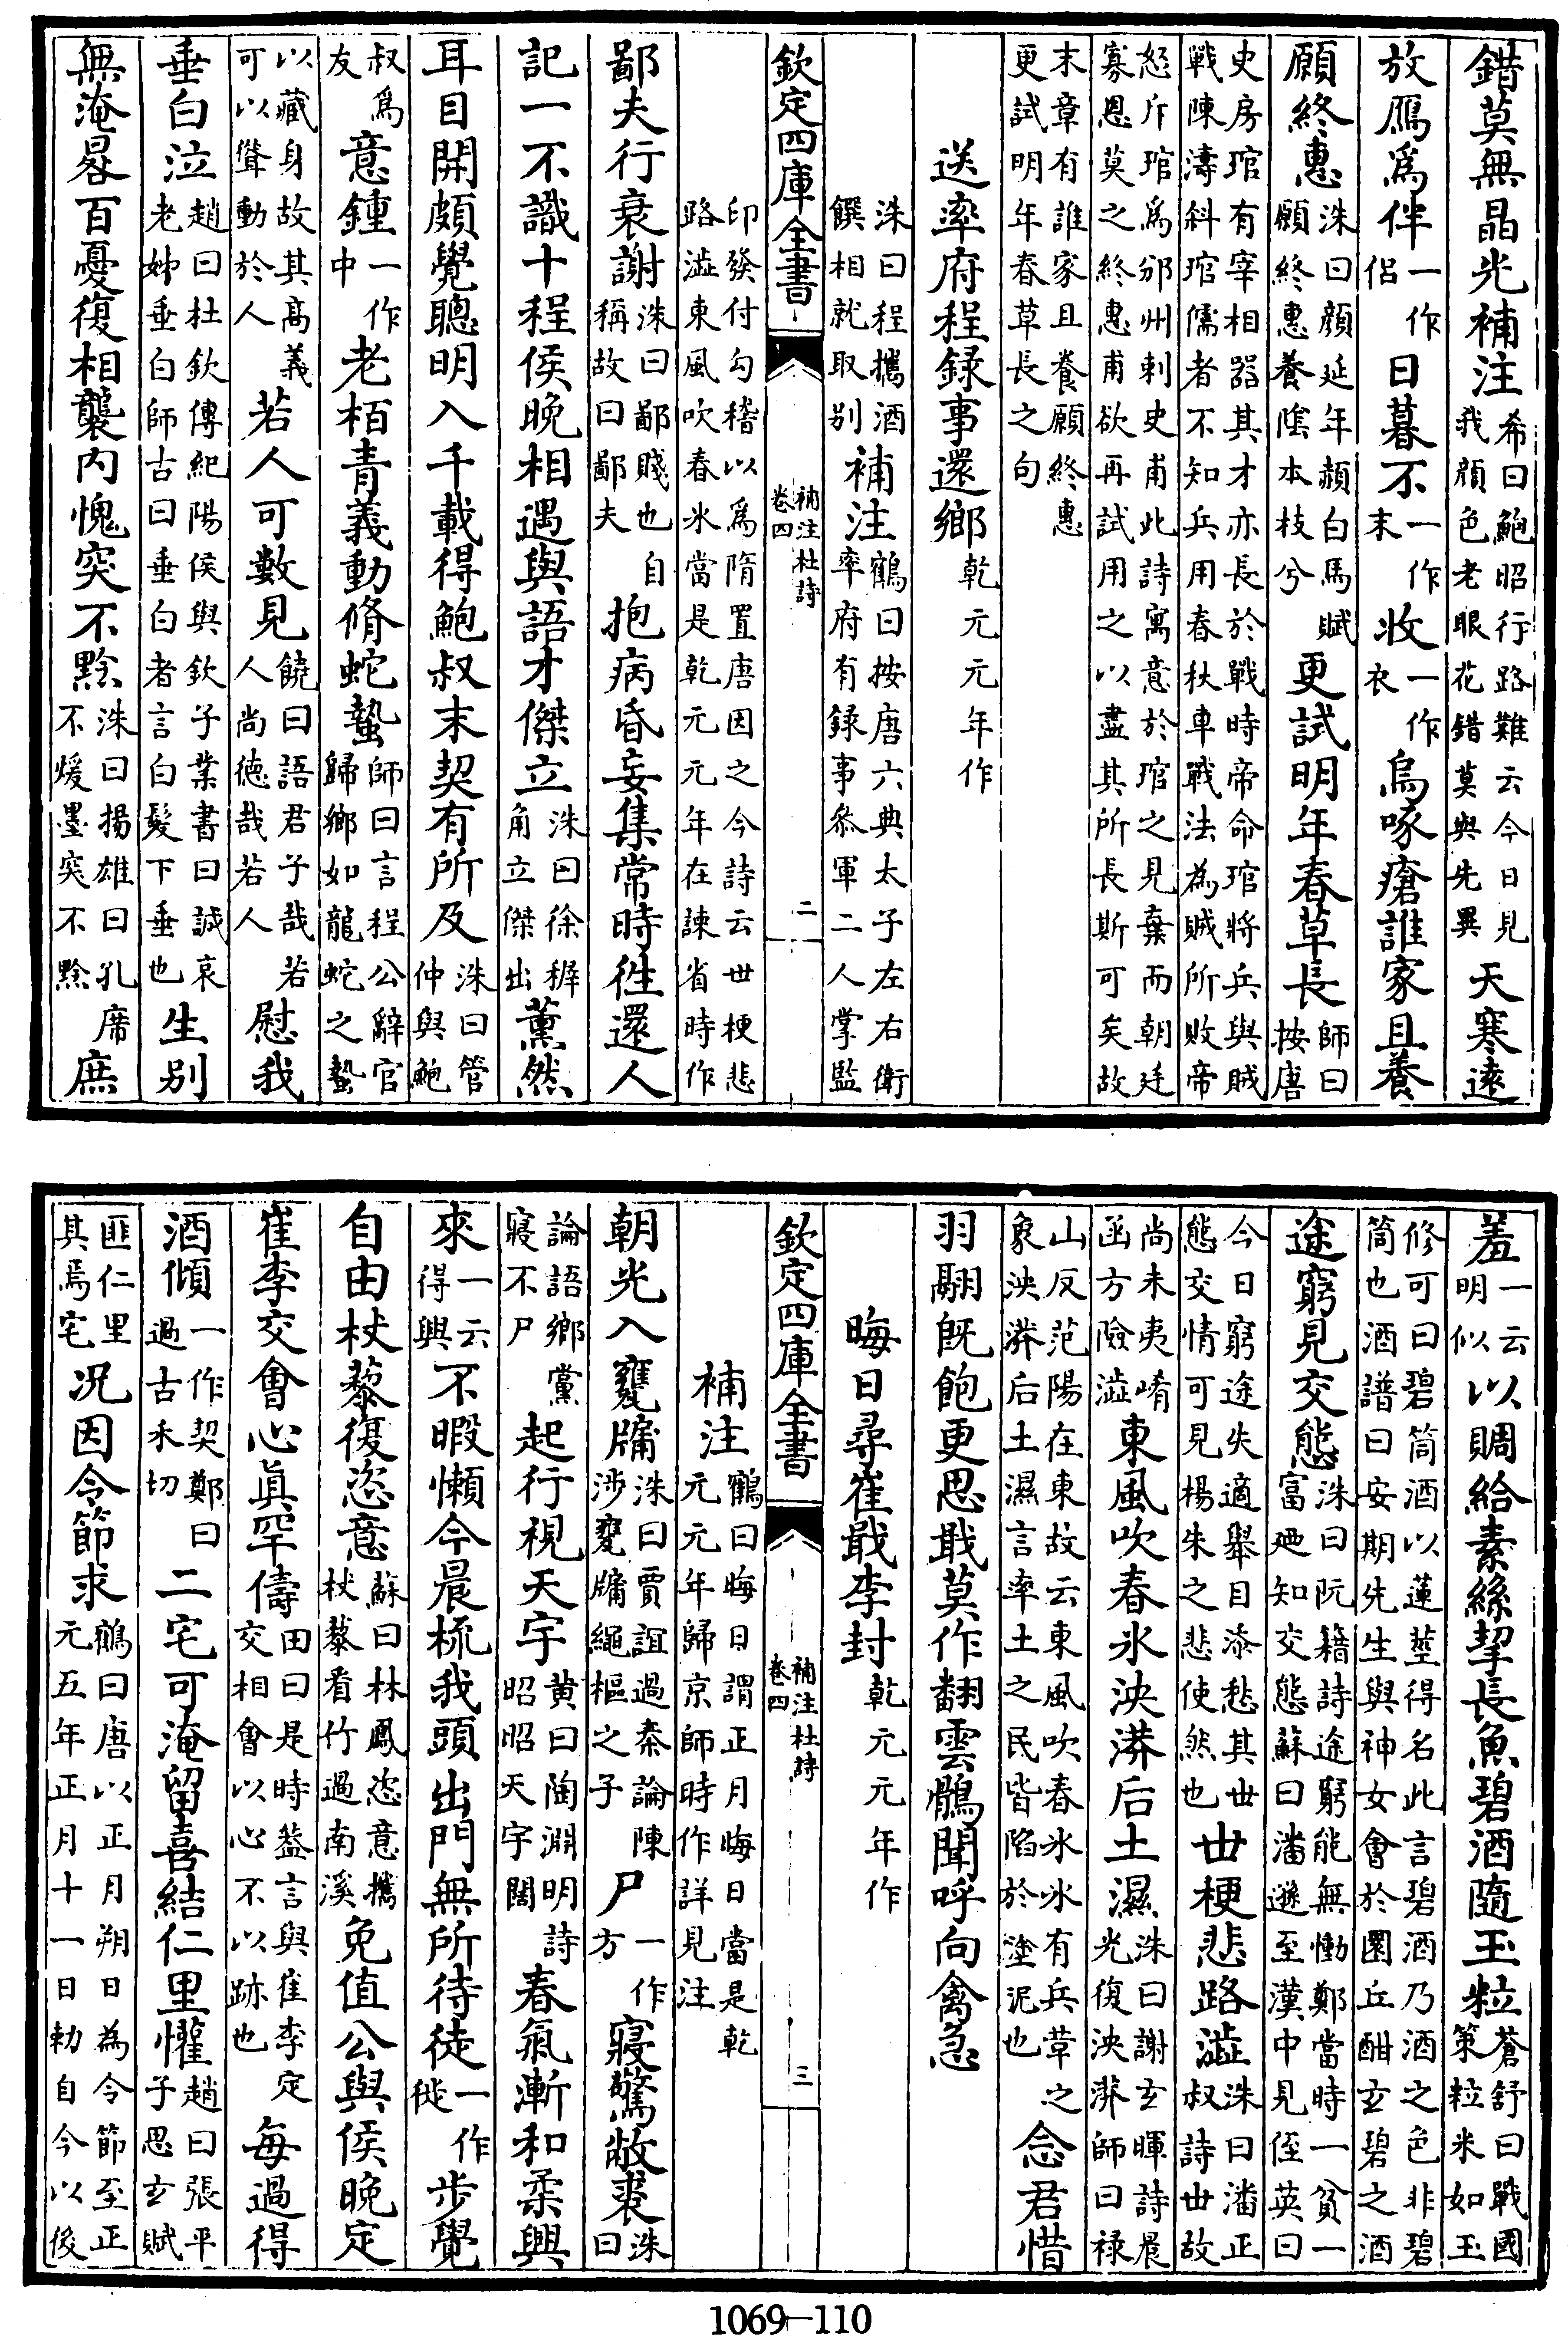 錯莫無晶光補注希曰鮑昭行路難云今日見我顔色老眼花錯莫與先異天寒逺
放鴈爲伴一作侣日暮不一作末收一作衣烏啄瘡誰家且養
願終惠洙曰顔延年赭白馬賦願終惠養䧃本枝兮更試明年春草長師曰按唐
史房琯有宰相器其才亦長於戰時帝命琯將兵與賊戰陳濤斜琯儒者不知兵用春秋車戰法為賊所敗帝
怒斥琯爲邠州刺史甫此詩寓意於琯之見棄而朝廷寡恩莫之終惠甫欲再試用之以盡其所長斯可矣故
末章有誰家且養願終惠更試明年春草長之句
送率府程録事還鄉乾元元年作
洙曰程攜酒饌相就取别補注鶴曰按唐六典太子左右衛率府有録事叅軍二人掌監
欽定四庫全書 補注杜詩卷四 二
印發付勾稽以爲隋置唐因之今詩云世梗悲路澁東風吹春氷當是乾元元年在諫省時作
鄙夫行衰謝洙曰鄙賤也自稱故曰鄙夫抱病昏妄集常時徃還人
記一不識十程侯晚相遇與語才傑立洙曰徐穉角立傑出薫然
耳目開頗覺聰明入千載得鮑叔末契有所及洙曰管仲與鮑
叔爲友意鍾一作中老栢青義動脩蛇蟄師曰言程公辭官歸鄉如龍蛇之蟄
以藏身故其高義可以聳動於人若人可數見饒曰語君子哉若人尚德哉若人慰我
垂白泣趙曰杜欽傳紀陽侯與欽子業書曰誠哀老姊垂白師古曰垂白者言白髮下垂也生别
無淹晷百憂復相襲内愧突不黔洙曰揚雄曰孔席不煖墨突不黔庶
羞一云明似以賙給素絲挈長魚碧酒隨玉粒蒼舒曰戰國策粒米如玉
修可曰碧筒酒以蓮莖得名此言碧酒乃酒之色非碧筒也酒譜曰安期先生與神女會於圜丘酣玄碧之酒
途窮見交態洙曰阮籍詩途窮能無慟鄭當時一貧一富廼知交態蘇曰潘遜至漢中見侄英曰
今日窮途失適舉目添愁其世態交情可見楊朱之悲使然也世梗悲路澁洙曰潘正叔詩世故
尚未夷崤函方險澁東風吹春氷泱漭后土濕洙曰謝玄暉詩晨光復泱漭師曰禄
山反范陽在東故云東風吹春氷氷有兵革之象泱漭后土濕言率土之民皆陷於塗泥也念君惜
羽翮既飽更思戢莫作翻雲鶻聞呼向禽急
晦日尋崔戢李封乾元元年作
補注鶴曰晦日謂正月晦日當是乾元元年歸京師時作詳見注
欽定四庫全書 補注杜詩卷四 三
朝光入甕牖洙曰賈誼過秦論陳渉甕牖繩樞之子尸一作方寢驚敝裘洙曰
論語鄉黨寢不尸起行視天宇黄曰陶淵明詩昭昭天宇闊春氣漸和柔興
來一云得興不暇懶今晨梳我頭出門無所待徒一作徙步覺
自由杖藜復恣意蘇曰林鳳恣意攜杖藜看竹過南溪免值公與侯晚定
崔李交會心真罕儔田曰是時葢言與崔李定交相會以心不以跡也每過得
酒傾一作過契鄭曰古禾切二宅可淹留喜結仁里懽趙曰張平子思玄賦
匪仁里其焉宅况因令節求鶴曰唐以正月朔日為令節至正元五年正月十一日勅自今以後
1069—110